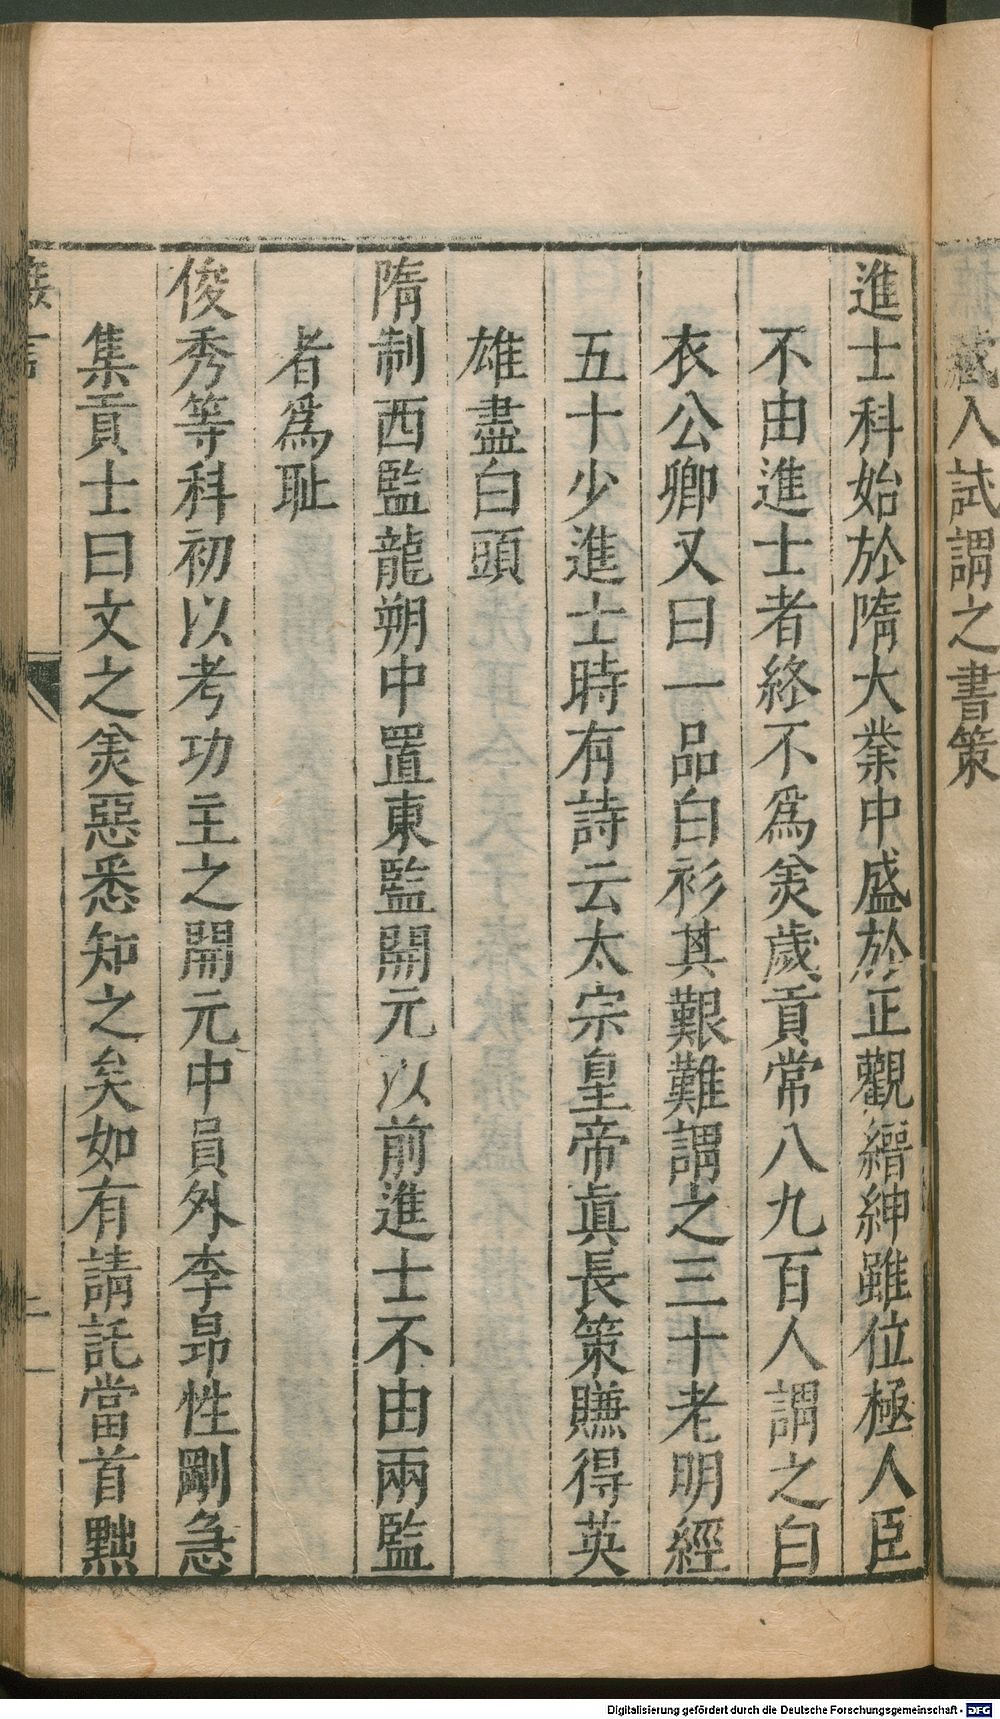 藏入試謂之書策
進士科始於隋大業中盛於正觀縉紳雖位極人臣
不由進士者終不爲美歲貢常八九百人謂之白
衣公卿又曰一品白衫其艱難謂之三十老明經
五十少進士時有詩云太宗皇帝真長策賺得英
雄盡白頭
隋制西監龍朔中置東監開元以前進士不由兩監
者爲耻
俊秀等科初以考功主之開元中員外李昂性剛急
集貢士曰文之美惡悉知之矣如有請託當首黜
Digitalisierung gefördert durch die Deutsche Forschungsgemeinschaft - DFG